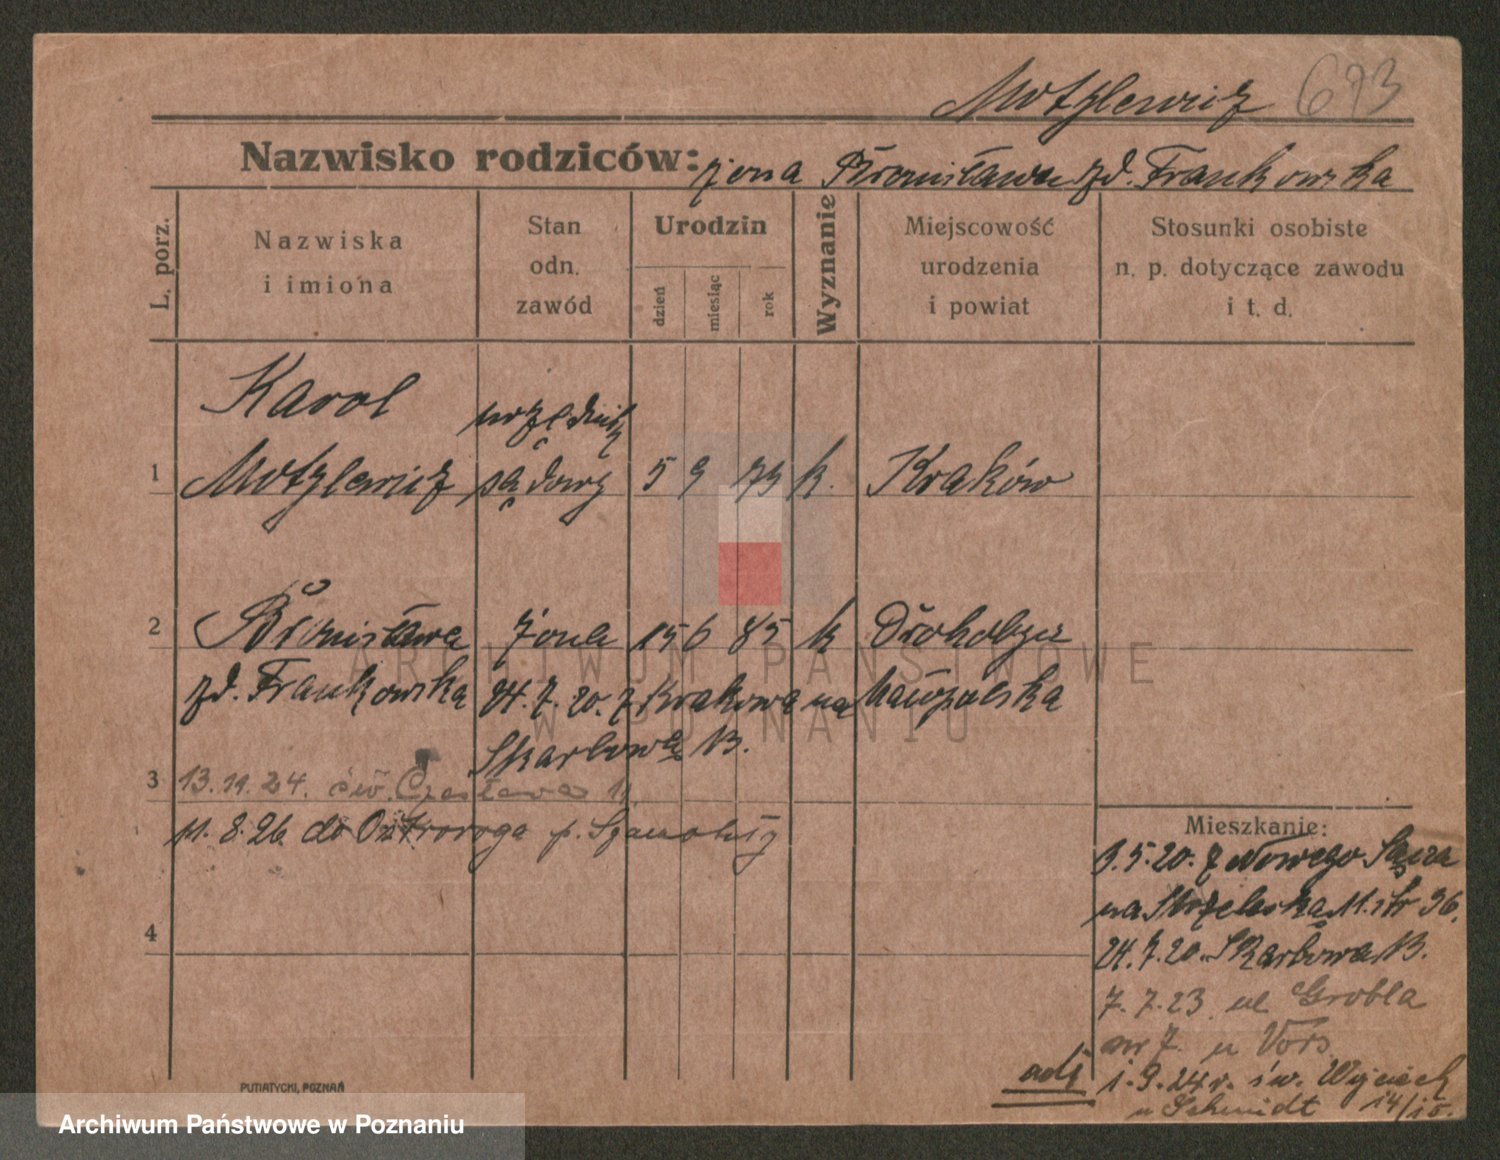 Motylewicz 693
Nazwisko rodziców: żona Bronisława zd. Frankowska
L. porz.
Nazwiska
i imiona
Stan
odn.
zawód
Urodzin
dzień
miesiąc
rok
Wyznanie
Miejscowość
urodzenia
i powiat
Stosunki osobiste
n. p. dotyczące zawodu
i t. d.
Karol urzędnik
1 Motylewicz sądowy 5 9 73 k. Kraków
2 Bronisława żona 15 6 85 k Drohobycz
zd. Frankowska 24.7.20. z Krakowa na Małopolska
Skarbową 13.
3 13. 24. św. Czesława 11
11.8.26. do Ostroroga p. Szamotuły
4
Mieszkanie:
3.5.20. z Nowego Sącza
na Strzelecką 36.
24.7.20. Skarbowa 13.
7.7.23 ul Grobla
nr 7. u Vors
1.9.24 r. św. Wojciech
u Schmidt 14/15.
PUTIATYCKI, POZNAŃ
ARCHIWUM PAŃSTWOWE
W POZNANIU
Archiwum Państwowe w Poznaniu